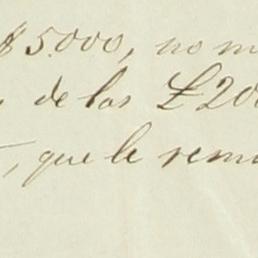 $5.000, no m
de las £20
, que le rem